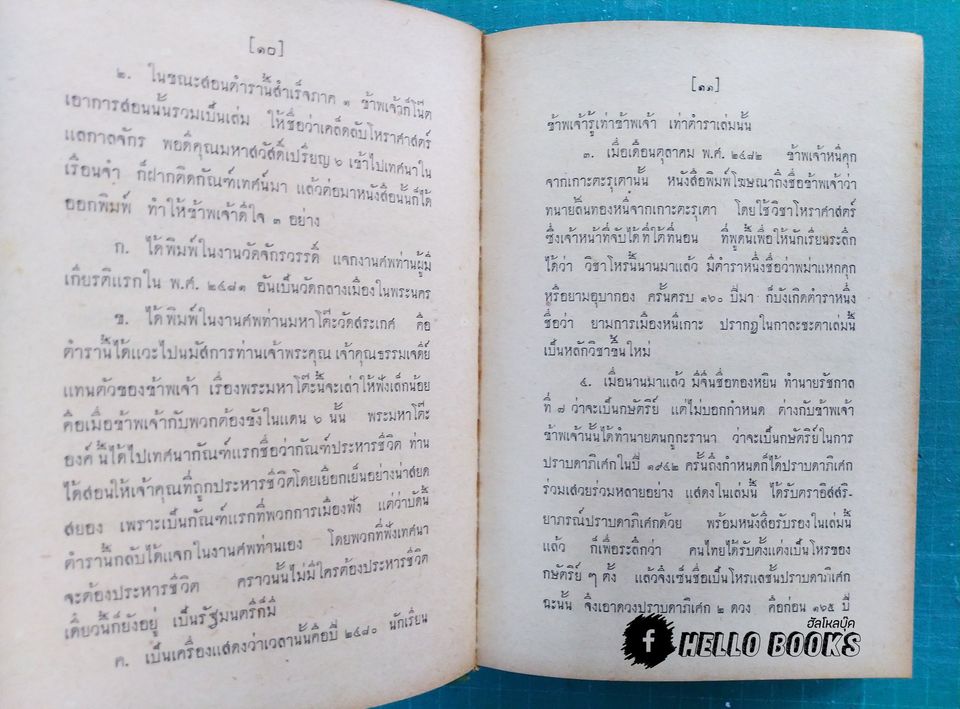 [๑๐]
๒. ในขณะสอนตำรานี้สำเร็จภาค ๑ ข้าพเจ้าก็โน๊ต
เอาการสอนนั้นรวมเป็นเล่ม ให้ชื่อว่าเคล็ดลับโหราศาสตร์
แลกาลจักร พอดีคุณมหาสวัสดิ์เปรียญ ๖ เข้าไปเทศนาใน
เรือนจำ ก็ฝากติดกัณฑ์เทศน์มา แล้วต่อมาหนังสือนั้นก็ได้
ออกพิมพ์ ทำให้ข้าพเจ้าดีใจ ๓ อย่าง
ก. ได้พิมพ์ในงานวัดจักรวรรดิ์ แจกงานศพท่านผู้มี
เกียรติแรกใน พ.ศ. ๒๔๘๑ อันเป็นวัดกลางเมืองในพระนคร
ข. ได้พิมพ์ในงานศพท่านมหาโต๊ะวัดสระเกศ คือ
ตำรานี้ได้แวะไปนมัสการท่านเจ้าพระคุณ เจ้าคุณธรรมเจดีย์
แทนตัวของข้าพเจ้า เรื่องพระมหาโต๊ะนี้จะเล่าให้ฟังเล็กน้อย
คือเมื่อข้าพเจ้ากับพวกต้องขังในแดน ๖ นั้น พระมหาโต๊ะ
องค์นี้ได้ไปเทศนากัณฑ์แรกชื่อว่ากัณฑ์ประหารชีวิต ท่าน
ได้สอนให้เจ้าคุณที่ถูกประหารชีวิตโดยเยือกเย็นอย่างน่าสยด
สยอง เพราะเป็นกัณฑ์แรกที่พวกการเมืองฟัง แต่ว่าบัดนี้
ตำรานี้กลับได้แจกในงานศพท่านเอง โดยพวกที่ฟังเทศนา
จะต้องประหารชีวิต คราวนั้นไม่มีใครต้องประหารชีวิต
เดี๋ยวนี้ก็ยังอยู่ เป็นรัฐมนตรีก็มี
ค. เป็นเครื่องแสดงว่าเวลานั้นคือปี ๒๔๘๐ นักเรียน
[๑๑]
ข้าพเจ้ารู้เท่าข้าพเจ้า เท่าตำราเล่มนั้น
๓. เมื่อเดือนตุลาคม พ.ศ. ๒๔๘๒ ข้าพเจ้าหนีคุก
จากเกาะตะรุเตานั้น หนังสือพิมพ์โฆษณาถึงชื่อข้าพเจ้าว่า
ทนายลิ้นทองหนีจากเกาะตะรุเตา โดยใช้วิชาโหราศาสตร์
ซึ่งเจ้าหน้าที่จับได้ที่ใต้ที่นอน ที่พูดนี้เพื่อให้นักเรียนระลึก
ได้ว่า วิชาโหรนี้นานมาแล้ว มีตำราหนึ่งชื่อว่าพม่าแหกคุก
หรือยามอุบากอง ครั้นครบ ๑๖๐ ปีมา ก็บังเกิดตำราหนึ่ง
ชื่อว่า ยามการเมืองหนีเกาะ ปรากฏในกาละชะตาเล่มนี้
เป็นหลักวิชาขึ้นใหม่
๔. เมื่อนานมาแล้ว มีจีนชื่อทองหยิน ทำนายรัชกาล
ที่ ๘ ว่าจะเป็นกษัตริย์ แต่ไม่บอกกำหนด ต่างกับข้าพเจ้า
ข้าพเจ้านั้นได้ทำนายตนกูกะรานา ว่าจะเป็นกษัตริย์ในการ
ปราบดาภิเศกในปี ๑๙๔๒ ครั้นถึงกำหนดก็ได้ปราบดาภิเศก
ร่วมเสวยร่วมหลายอย่าง แสดงในเล่มนี้ ได้รับตราอิสสริ-
ยาภรณ์ปราบดาภิเศกด้วย พร้อมหนังสือรับรองในเล่มนี้
แล้ว ก็เพื่อระลึกว่า คนไทยได้รับตั้งแต่งเป็นโหรของ
กษัตริย์ ๆ ตั้ง แล้วจึงเซ็นชื่อเป็นโหรแลชั้นปราบดาภิเศก
ฉะนั้น จึงเอาดวงปราบดาภิเศก ๒ ดวง คือก่อน ๑๖๕ ปี
ฮัลโหลบุ๊ค
f HELLO BOOKS